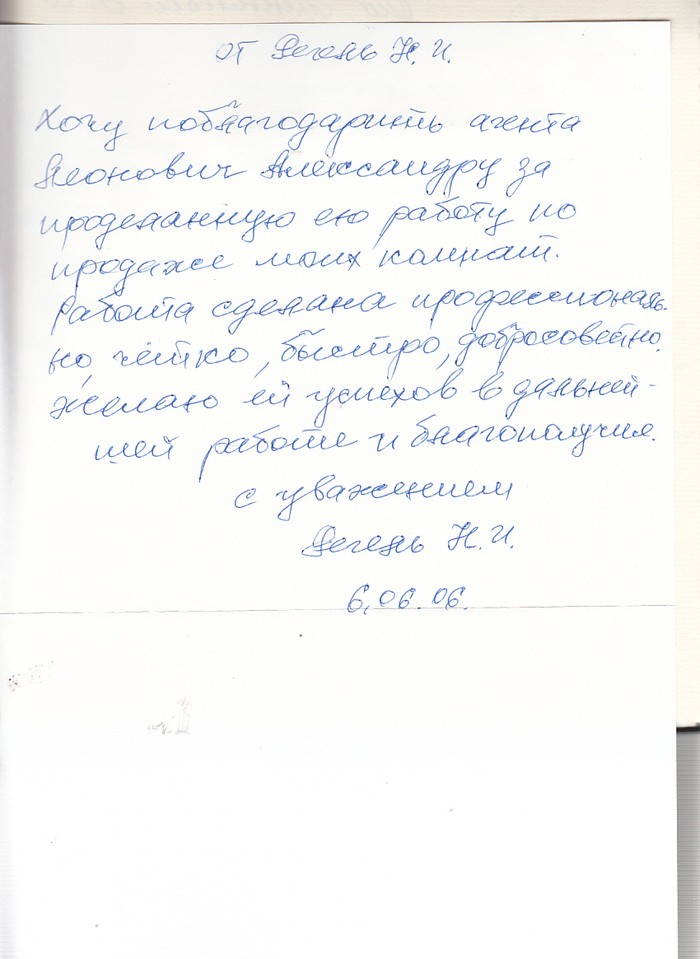 от Регель Н. И.
Хочу поблагодарить агента
Леонович Александру за
проделанную ею работу по
продаже моих комнат.
Работа сделана профессиональ-
но, чётко, быстро, добросовейно.
Желаю ей успехов в дальней-
шей работе и благополучия.
с уважением
Регель Н. И.
6.06.06.